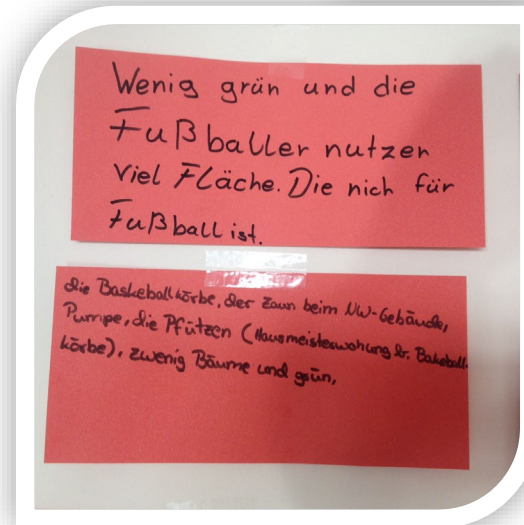 Wenig grün und die
Fußballer nutzen
viel Fläche. Die nich für
Fußball ist.
die Basketballkörbe, der Zaun beim NW-Gebäude,
Pumpe, die Pfützen (Hausmeisterwohung &. Baketball-
körbe), zwenig Bäume und grün,